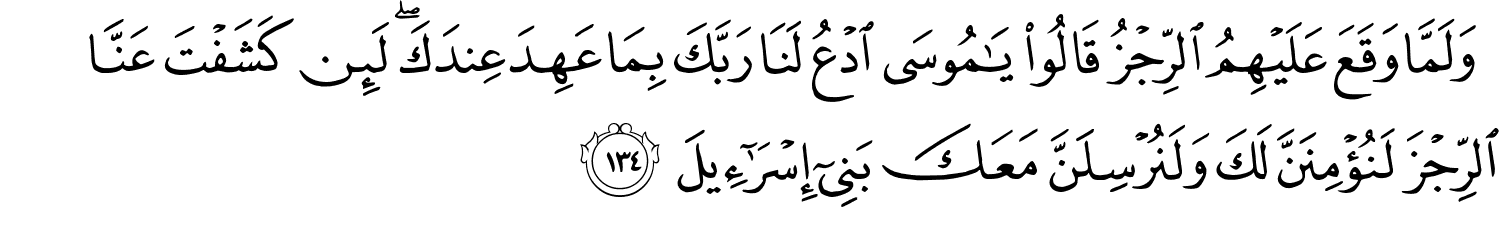 وَلَمَّا وَقَعَ عَلَيْهِمُ ٱلرِّجْزُ قَالُوا۟ يَـٰمُوسَى ٱدْعُ لَنَا رَبَّكَ بِمَا عَهِدَ عِندَكَ ۖ لَئِن كَشَفْتَ عَنَّا
ٱلرِّجْزَ لَنُؤْمِنَنَّ لَكَ وَلَنُرْسِلَنَّ مَعَكَ بَنِىٓ إِسْرَٰٓءِيلَ ١٣٤